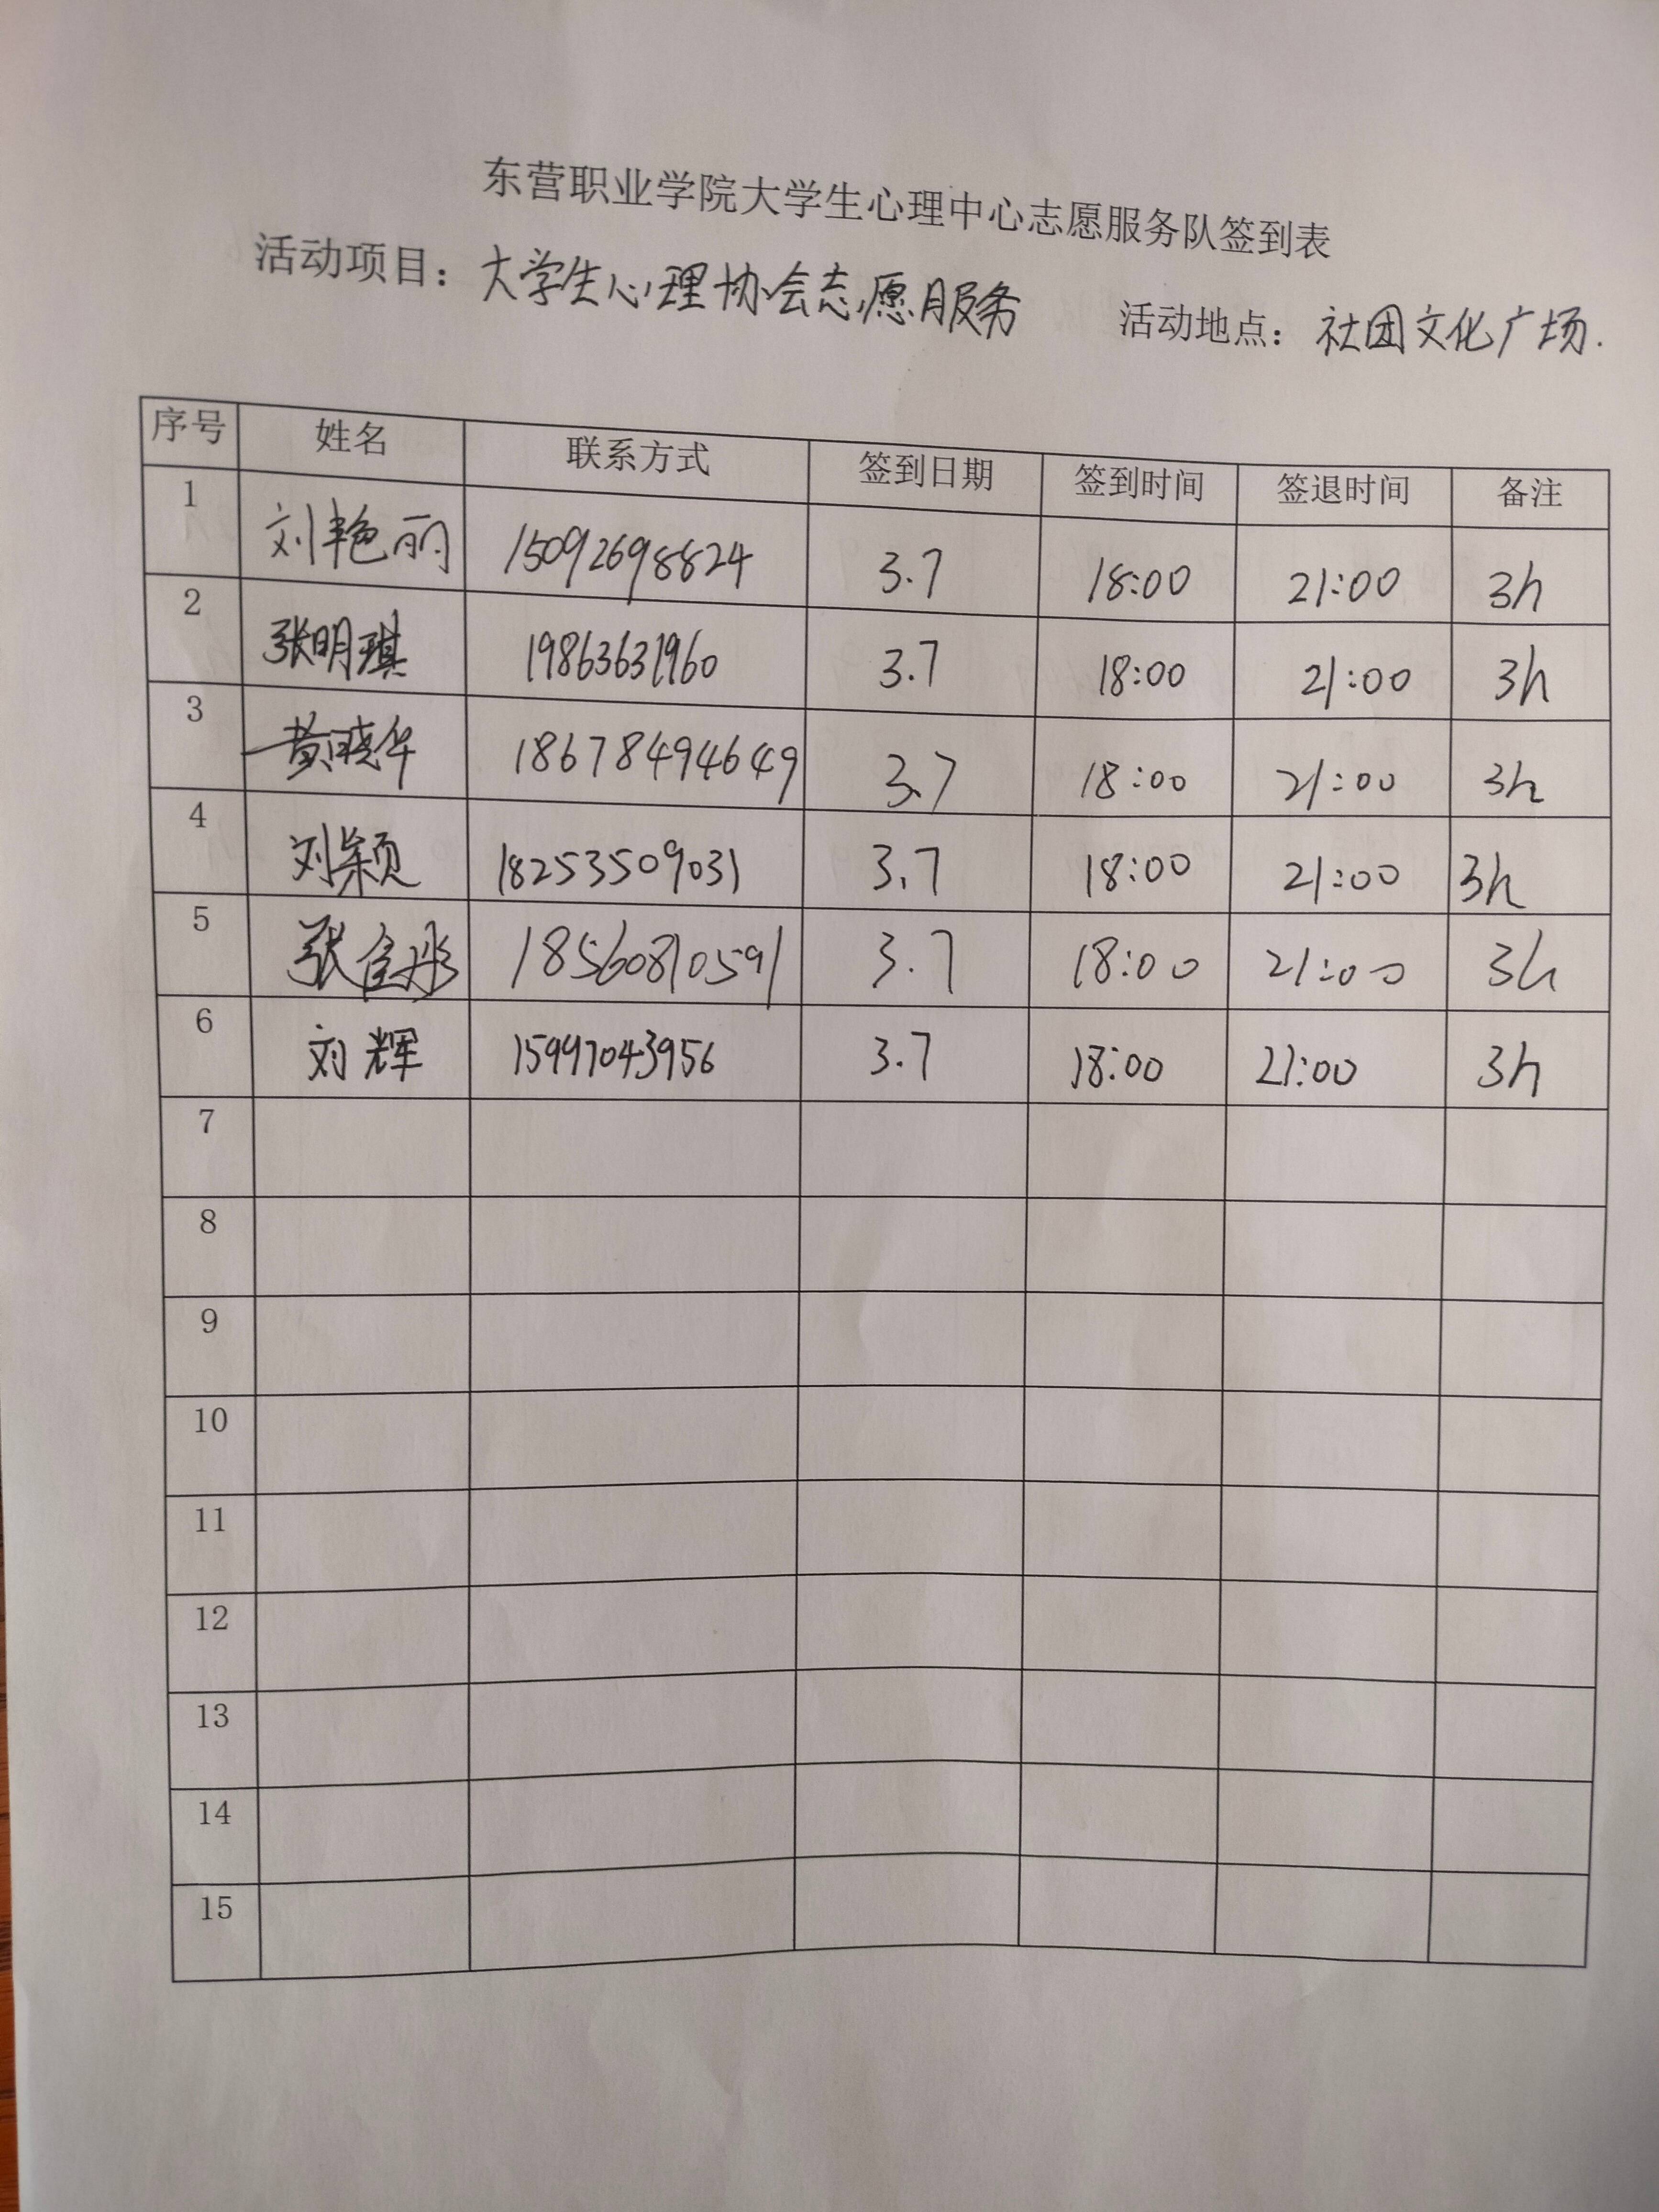 东营职业学院大学生心理中心志愿服务队签到表
活动项目：大学生心理协会志愿服务 活动地点：社团文化广场.
序号 姓名 联系方式 签到日期 签到时间 签退时间 备注
1 刘艳丽 15092698824 3.7 18:00 21:00 3h
2 张明琪 19863631960 3.7 18:00 21:00 3h
3 黄晓华 18678494649 3.7 18:00 21:00 3h
4 刘颖 18253509031 3.7 18:00 21:00 3h
5 张佳彤 18560810591 3.7 18:00 21:00 3h
6 刘辉 15997043956 3.7 18:00 21:00 3h
7
8
9
10
11
12
13
14
15